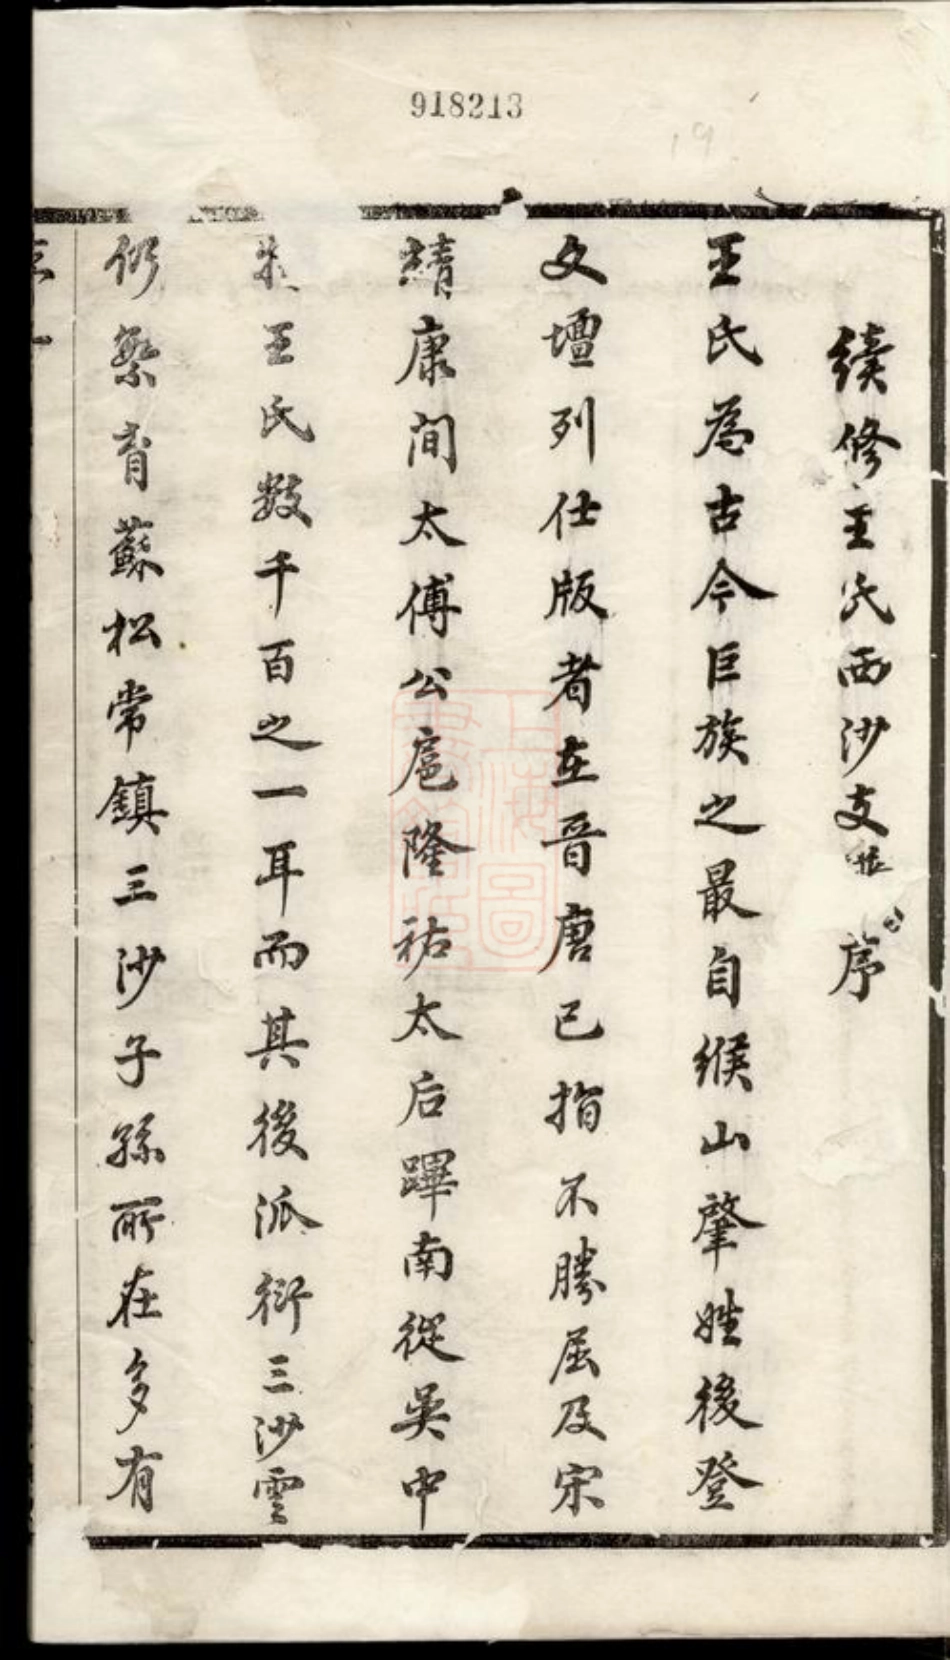 918213
19
續修王氏西沙支 序
王氏為古今巨族之最自緱山肇姓後登
文壇列仕版者在晉唐已指不勝屈及宋
靖康間太傅公扈隆祐太后蹕南從吳中
王氏数千百之一耳而其後派衍三沙雲
仍繁育蘇松常鎮三沙子孫所在多有
上海圖書館藏